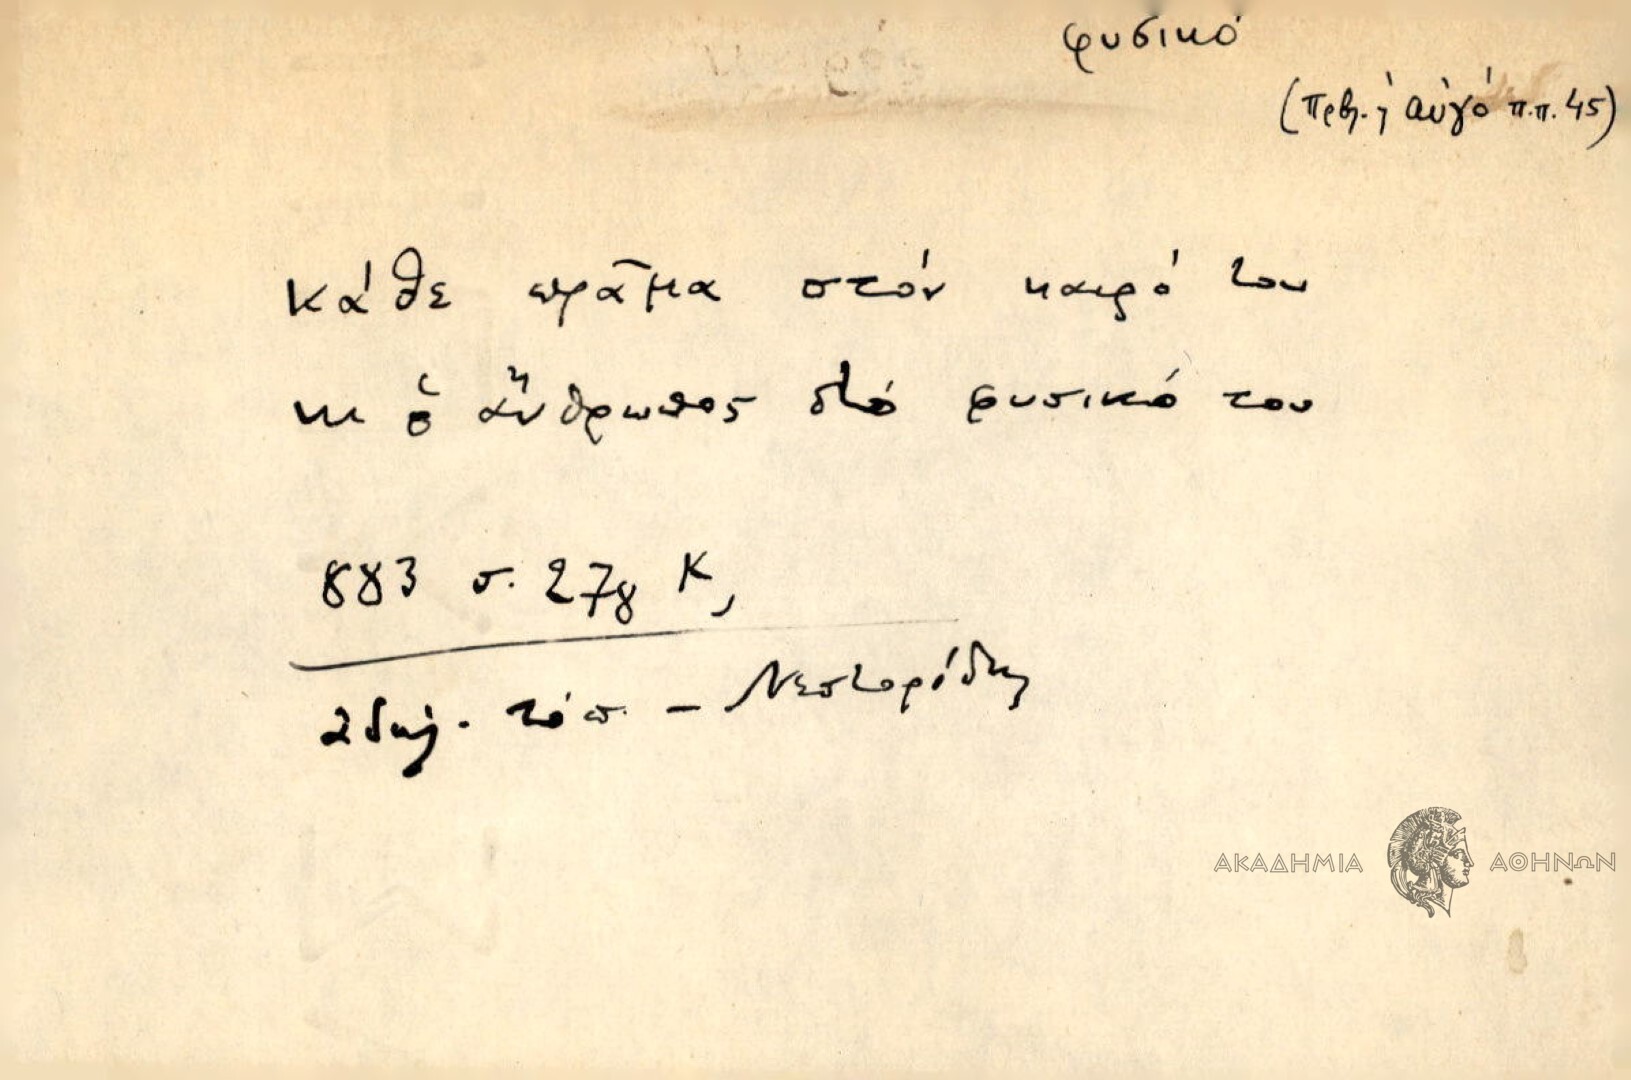 φυσικό
(Πρβλ. ἡ αὐγό π.π. 45)
Κάθε πρᾶμα στόν καιρό του
κι ὁ ἄνθρωπος στό φυσικό του
883 σ. 278 Κ,
τόπ. – Νεστορίδης
ΑΚΑΔΗΜΙΑ ΑΘΗΝΩΝ